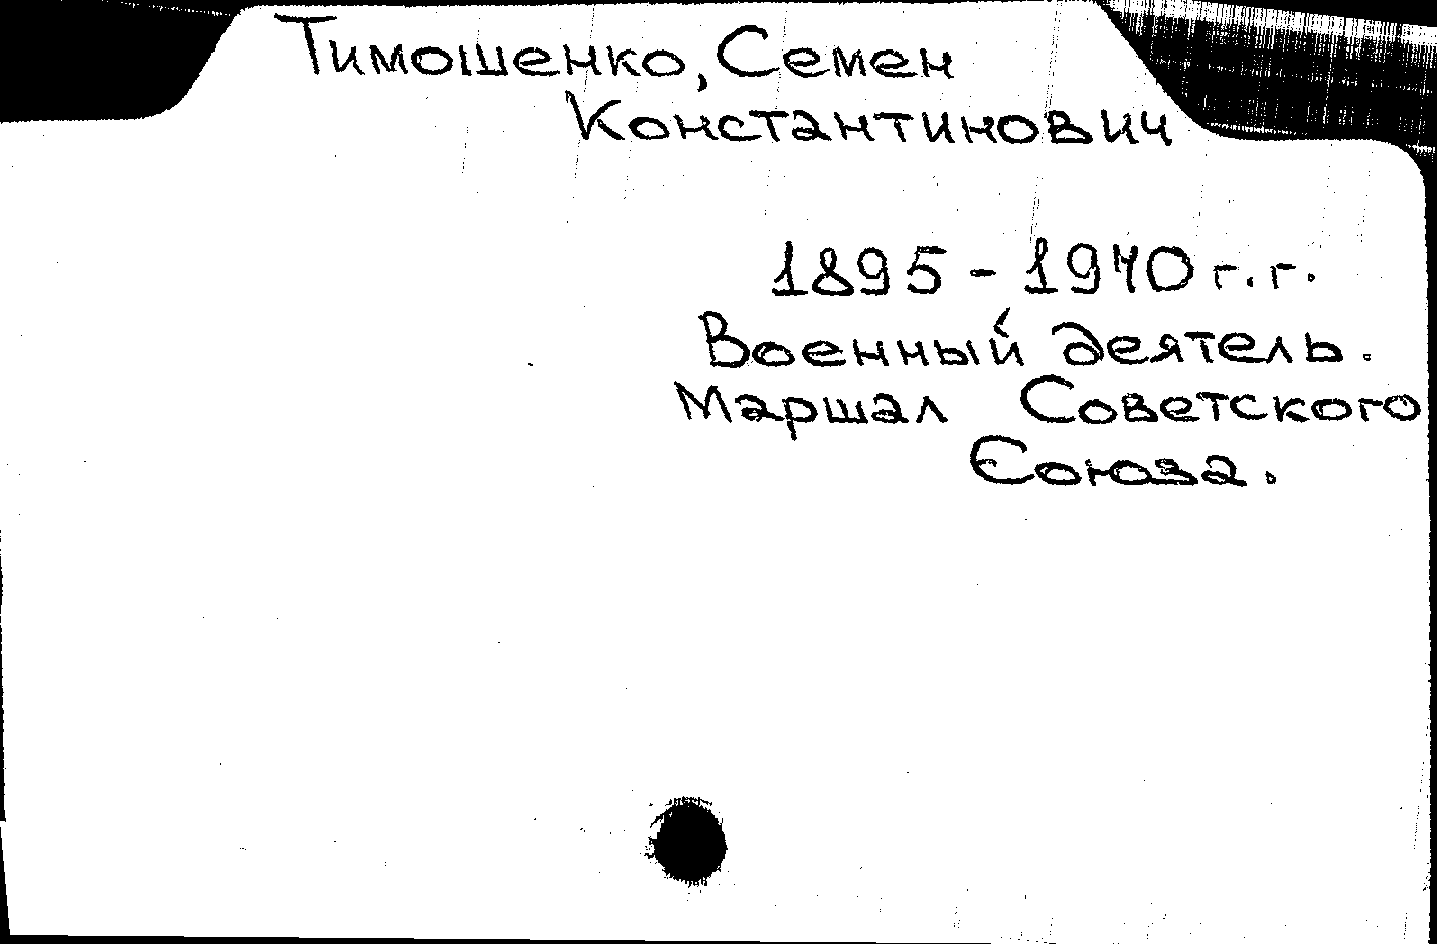 Тимошенко, Семен
Константинович
1895 - 1970 г.г.
Военный деятель.
Маршал Советского
Союза.